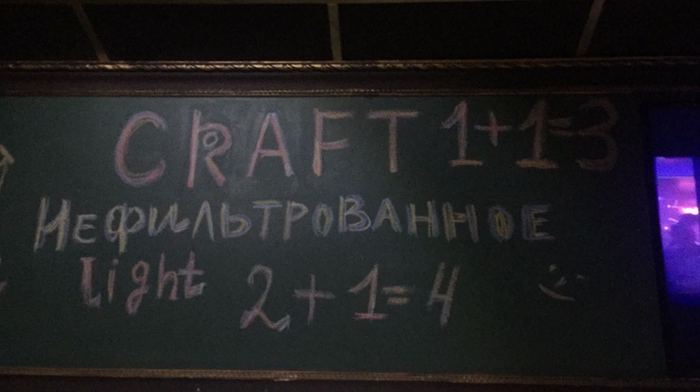 CRAFT 1+1=3
НЕФИЛЬТРОВАННОЕ
light 2+1=4